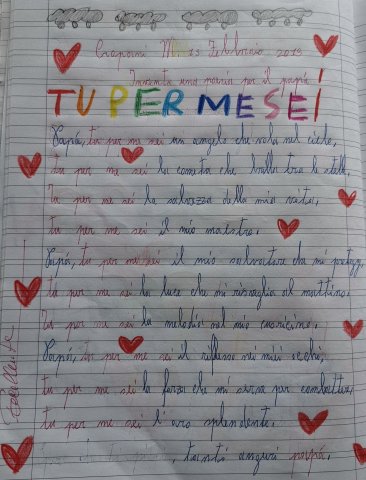 13 Febbraio 2013
Inventa una poesia per il papà
TU PER ME SEI
Papà, tu per me sei un angelo che vola nel cielo,
tu per me sei la cometa che balla tra le stelle,
tu per me sei la salvezza della mia vita,
tu per me sei il mio maestro.
Papà, tu per me sei il mio salvatore che mi protegge,
tu per me sei la luce che mi risveglia al mattino,
tu per me sei la melodia nel mio cuoricino.
Papà, tu per me sei il riflesso nei miei occhi,
tu per me sei la forza che mi serve per combattere,
tu per me sei l'oro splendente.
tanti auguri papà.
Eccellente